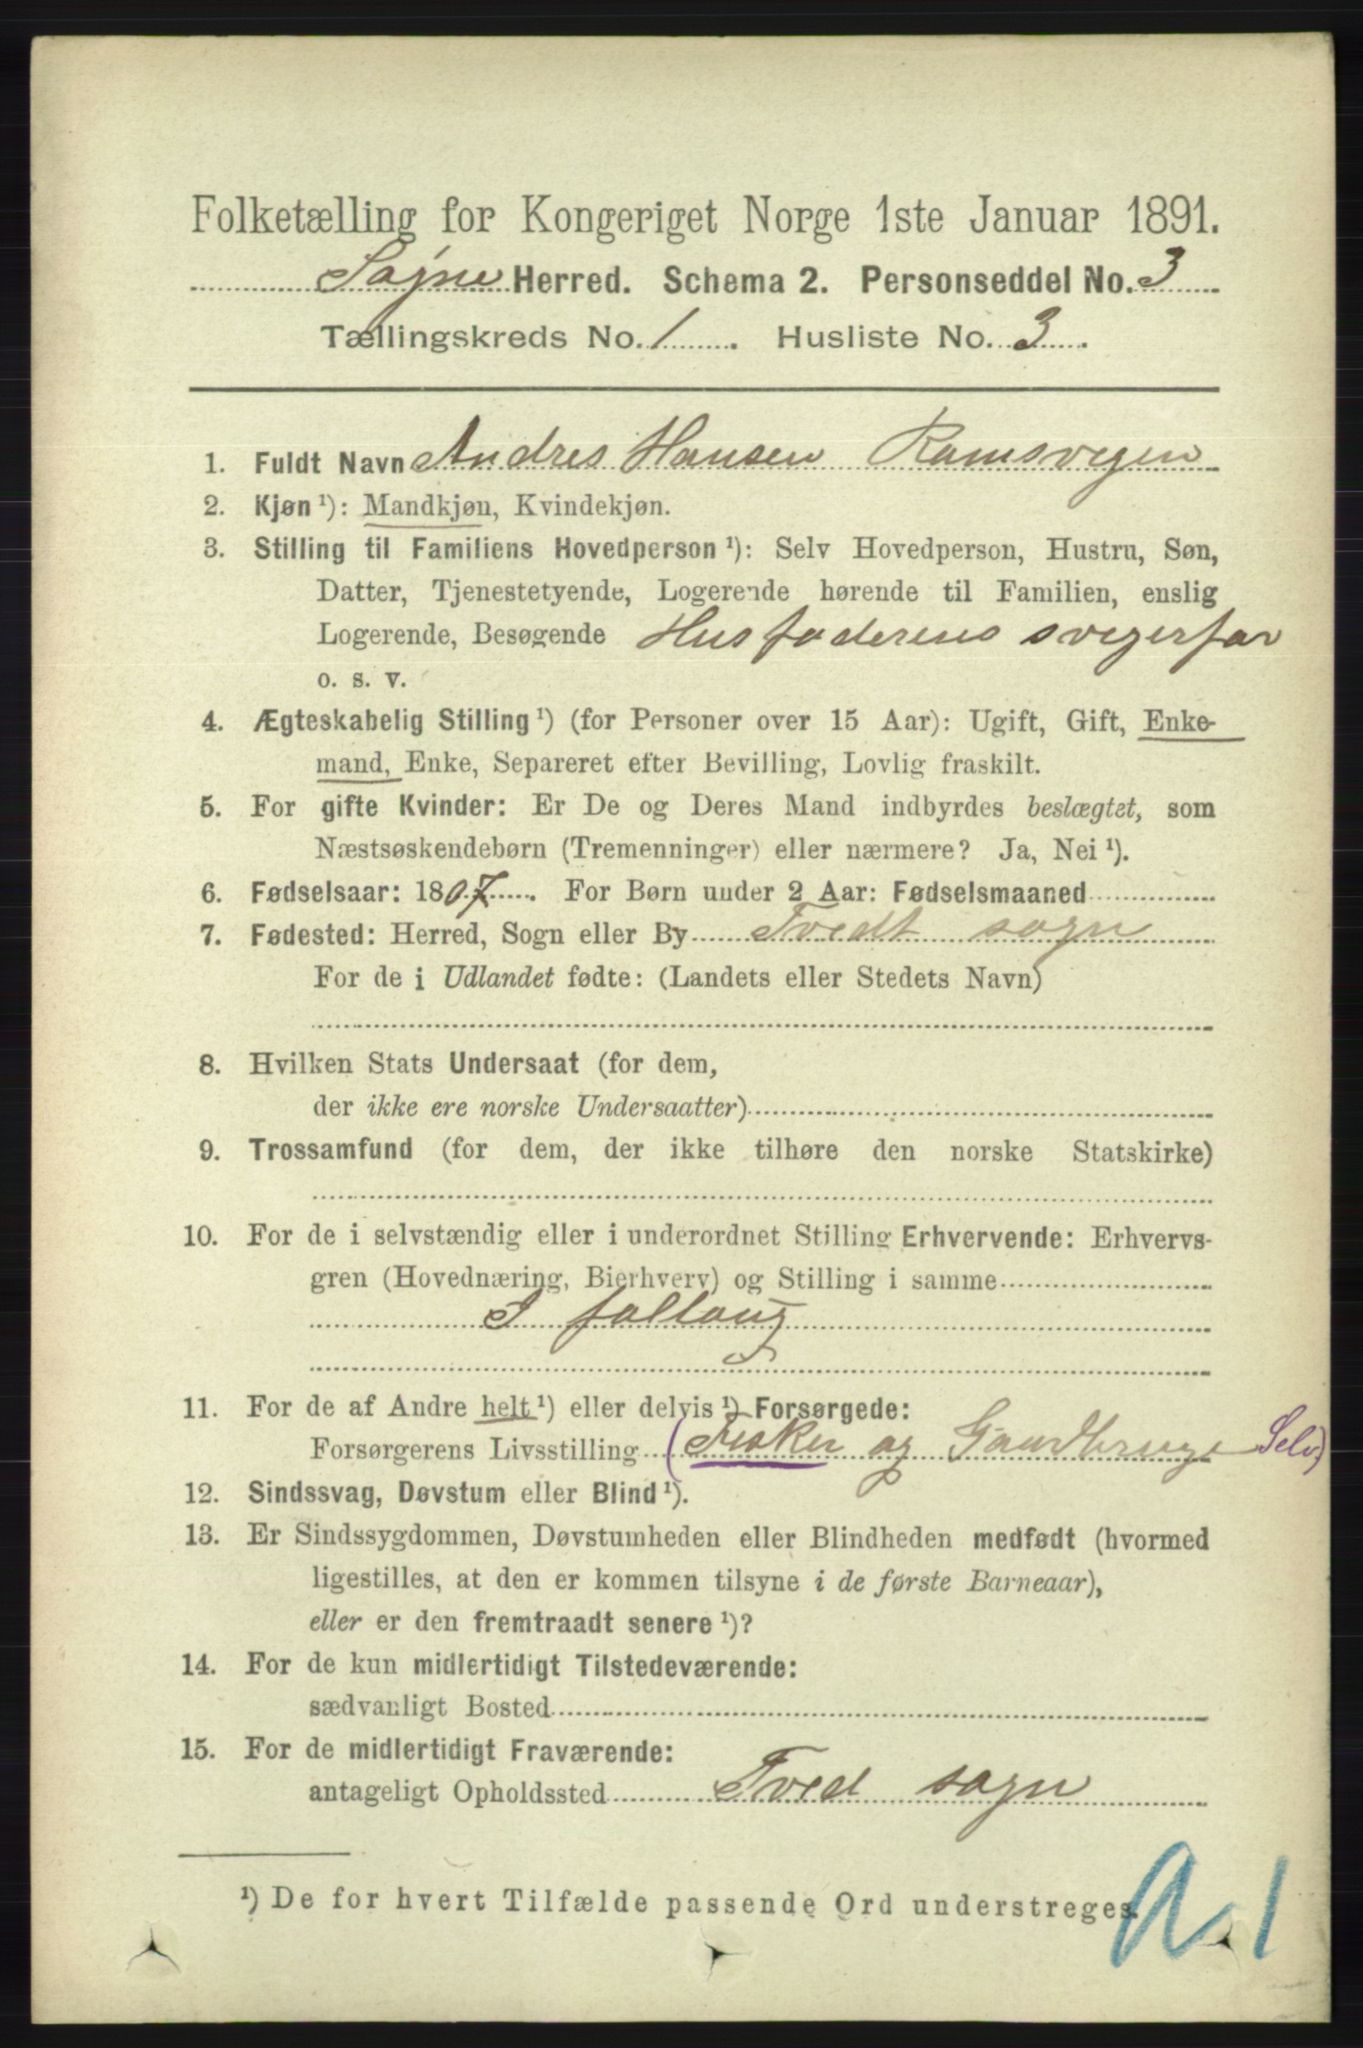 Folketælling for Kongeriget Norge 1ste Januar 1891.
Søgne Herred. Schema 2. Personseddel No. 3
Tællingskreds No. 1. Husliste No. 3.
1. Fuldt Navn Andres Hansen Ramsvigen
2. Kjøn ¹): Mandkjøn, Kvindekjøn.
3. Stilling til Familiens Hovedperson ¹): Selv Hovedperson, Hustru, Søn,
Datter, Tjenestetyende, Logerende hørende til Familien, enslig
Logerende, Besøgende Husfaderens svigerfar
o. s. v.
4. Ægteskabelig Stilling ¹) (for Personer over 15 Aar): Ugift, Gift, Enke-
mand, Enke, Separeret efter Bevilling, Lovlig fraskilt.
5. For gifte Kvinder: Er De og Deres Mand indbyrdes beslægtet, som
Næstsøskendebørn (Tremenninger) eller nærmere? Ja, Nei ¹).
6. Fødselsaar: 1807. For Børn under 2 Aar: Fødselsmaaned
7. Fødested: Herred, Sogn eller By Tvedt sogn
For de i Udlandet fødte: (Landets eller Stedets Navn)
8. Hvilken Stats Undersaat (for dem,
der ikke ere norske Undersaatter)
9. Trossamfund (for dem, der ikke tilhøre den norske Statskirke)
10. For de i selvstændig eller i underordnet Stilling Erhvervende: Erhvervs-
gren (Hovednæring, Bierhverv) og Stilling i samme
11. For de af Andre helt ¹) eller delvis ¹) Forsørgede:
Forsørgerens Livsstilling (Fisker og Gaardbruger Selv)
12. Sindssvag, Døvstum eller Blind ¹).
13. Er Sindssygdommen, Døvstumheden eller Blindheden medfødt (hvormed
ligestilles, at den er kommen tilsyne i de første Barneaar),
eller er den fremtraadt senere ¹)?
14. For de kun midlertidigt Tilstedeværende:
sædvanligt Bosted
15. For de midlertidigt Fraværende:
antageligt Opholdssted Tved sogn
¹) De for hvert Tilfælde passende Ord understreges.
a. 1